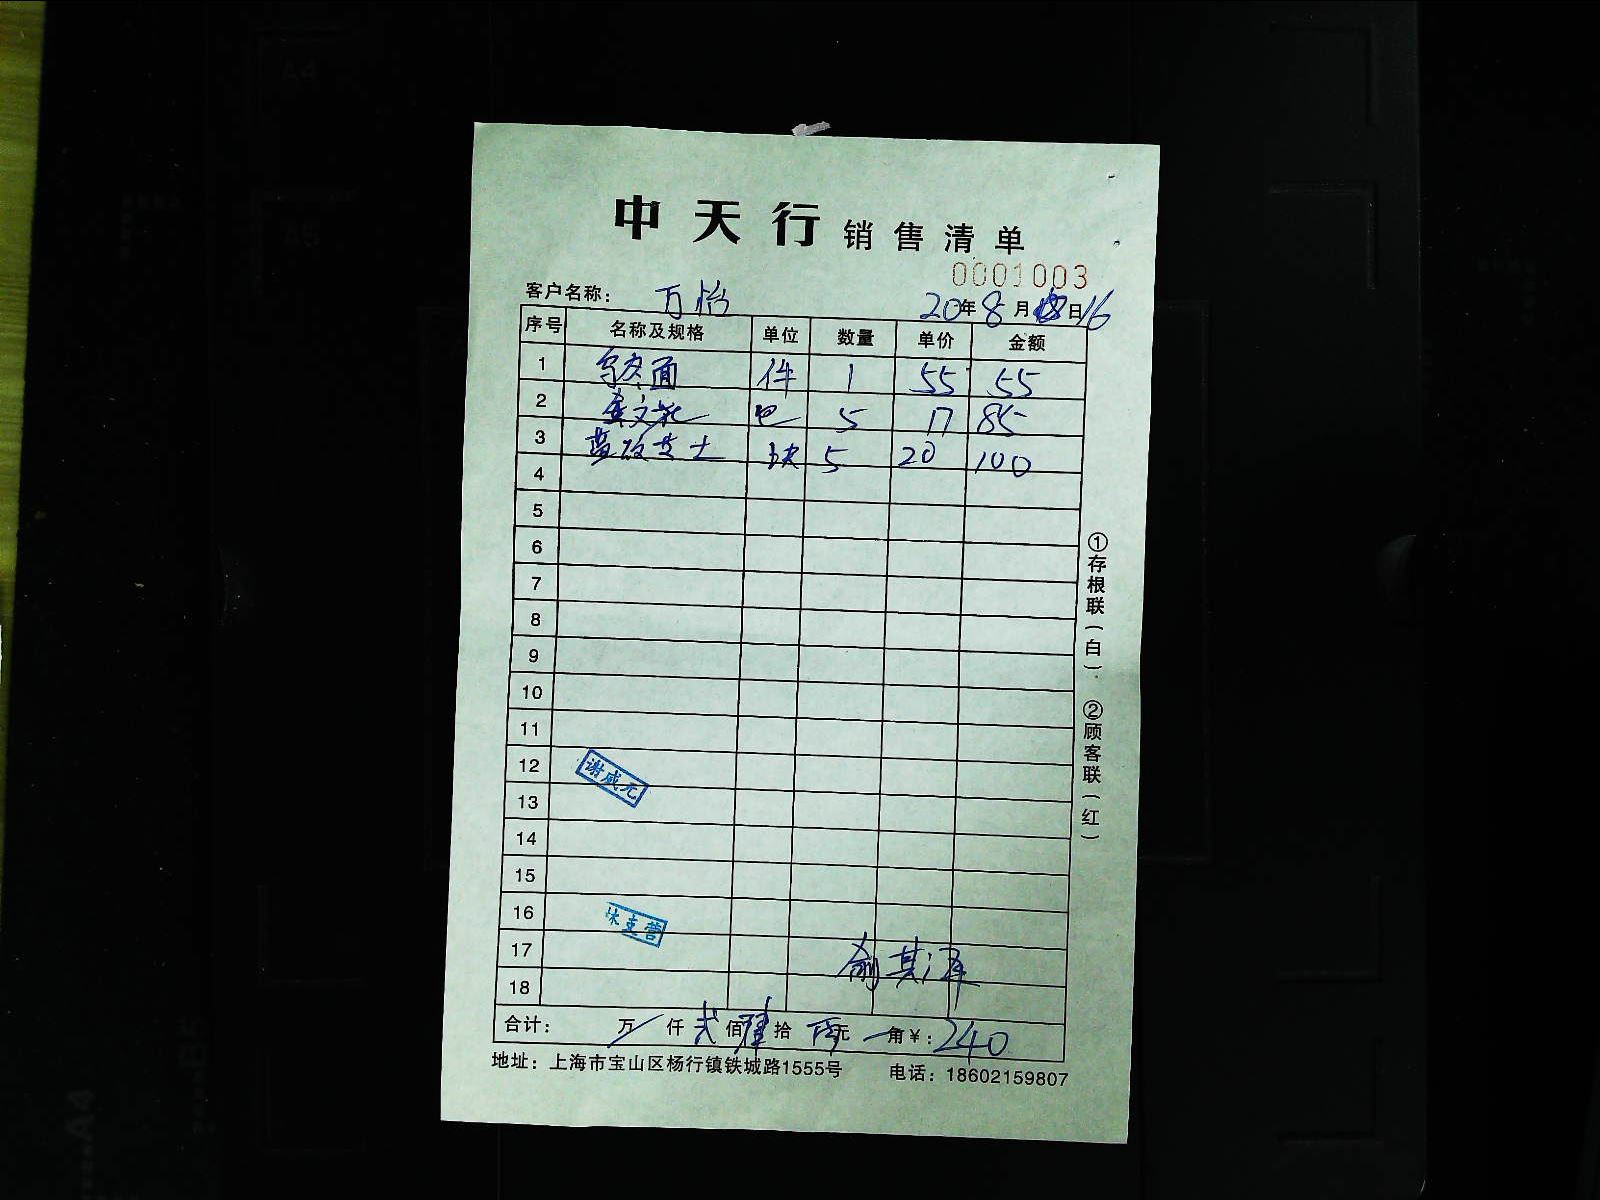 中天行销售清单
0001003
客户名称： 万怡 20年8月日16
序号 名称及规格 单位 数量 单价 金额
1 乌冬面 件 1 55 55
2 包 5 17 85
3 芝士 块 5 20 100
4
5
6
7
8
9
10
11
12 谢咸元
13
14
15
16
17 俞其泽
18
合计： 万 仟 贰佰肆拾 元 角￥：240
地址：上海市宝山区杨行镇铁城路1555号 电话：18602159807
①存根联（白）. ②顾客联（红）